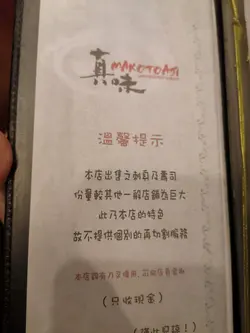 真味
MAKOTOAJI
溫馨提示
本店出售之刺身及壽司
份量較其他一般店舖為巨大
此乃本店的特色
故不提供個別的再切割服務
(只收現金)